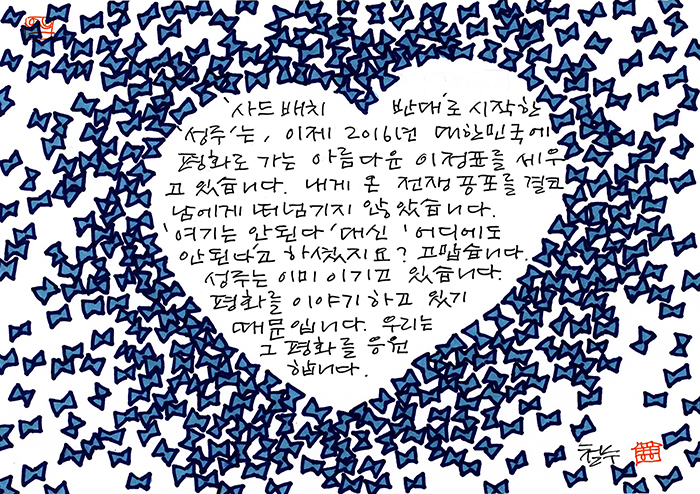 '사드 배치 반대'로 시작한
'성주'는, 이제 2016년 대한민국에
평화로 가는 아름다운 이정표를 세우
고 있습니다. 내게 온 전쟁 공포를 결코
남에게 떠넘기지 않았습니다.
'여기는 안된다' 대신 '어디에도
안된다'고 하셨지요? 고맙습니다.
성주는 이미 이기고 있습니다.
평화를 이야기하고 있기
때문입니다. 우리는
그 평화를 응원
합니다.
철수